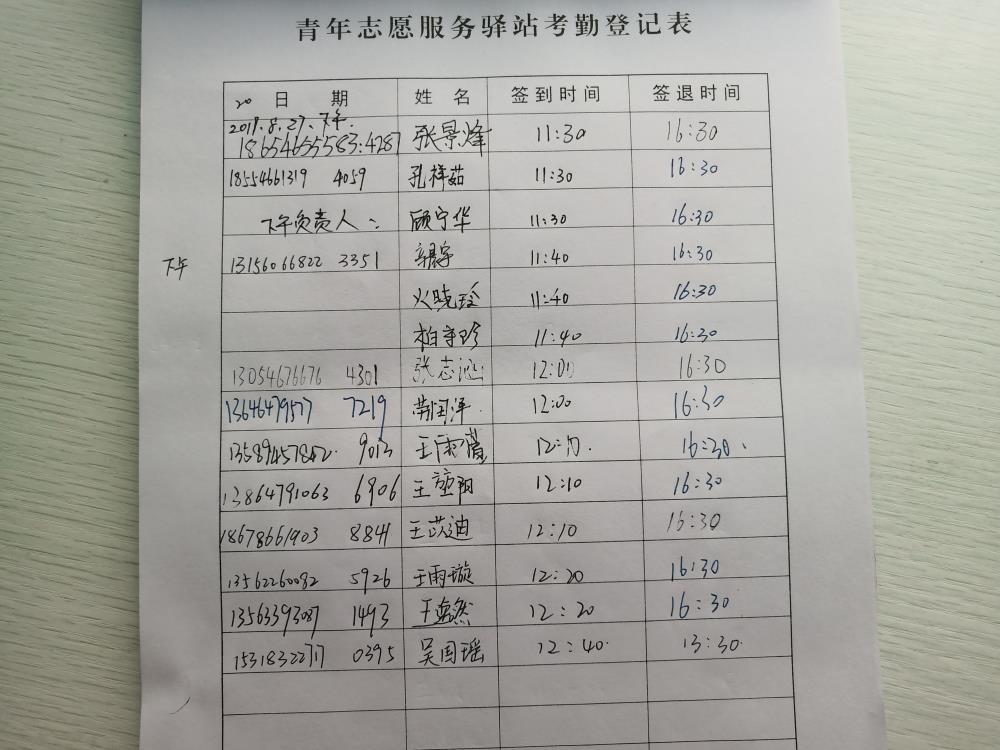 青年志愿服务驿站考勤登记表
20 日 期 姓 名 签到时间 签退时间
2019.8.27.下午.
18654655583:4287 张景烽 11:30 16:30
18554661319 4059 孔祥茹 11:30 16:30
下午负责人: 顾宁华 11:30 16:30
下午 13156066822 3351 11:40 16:30
火晓玲 11:40 16:30
柏守珍 11:40 16:30
13054676676 4301 张志涵 12:00 16:30
13646479577 7219 12:00 16:30
13589457842. 9013 王雨 16:30.
13864791063 6906 王堃阳 12:10 16:30
18678661903 8841 王苡迪 12:10 16:30
13562260082 5926 王雨璇 12:20 16:30
13563393087 1493 王 然 12:20 16:30
15318322717 0395 吴国瑶 12:40. 13:30.